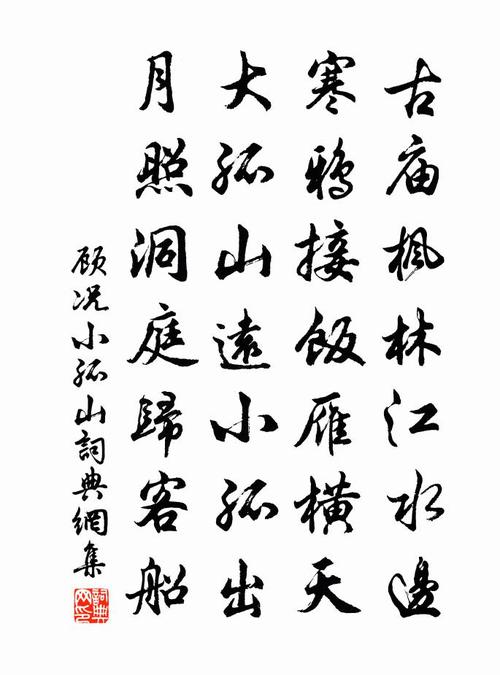 古庙枫林江水邊
寒鸦接飯雁橫天
大孤山遠小孤出
月照洞庭歸客船
顾况小孤山詞典網集
詞典网